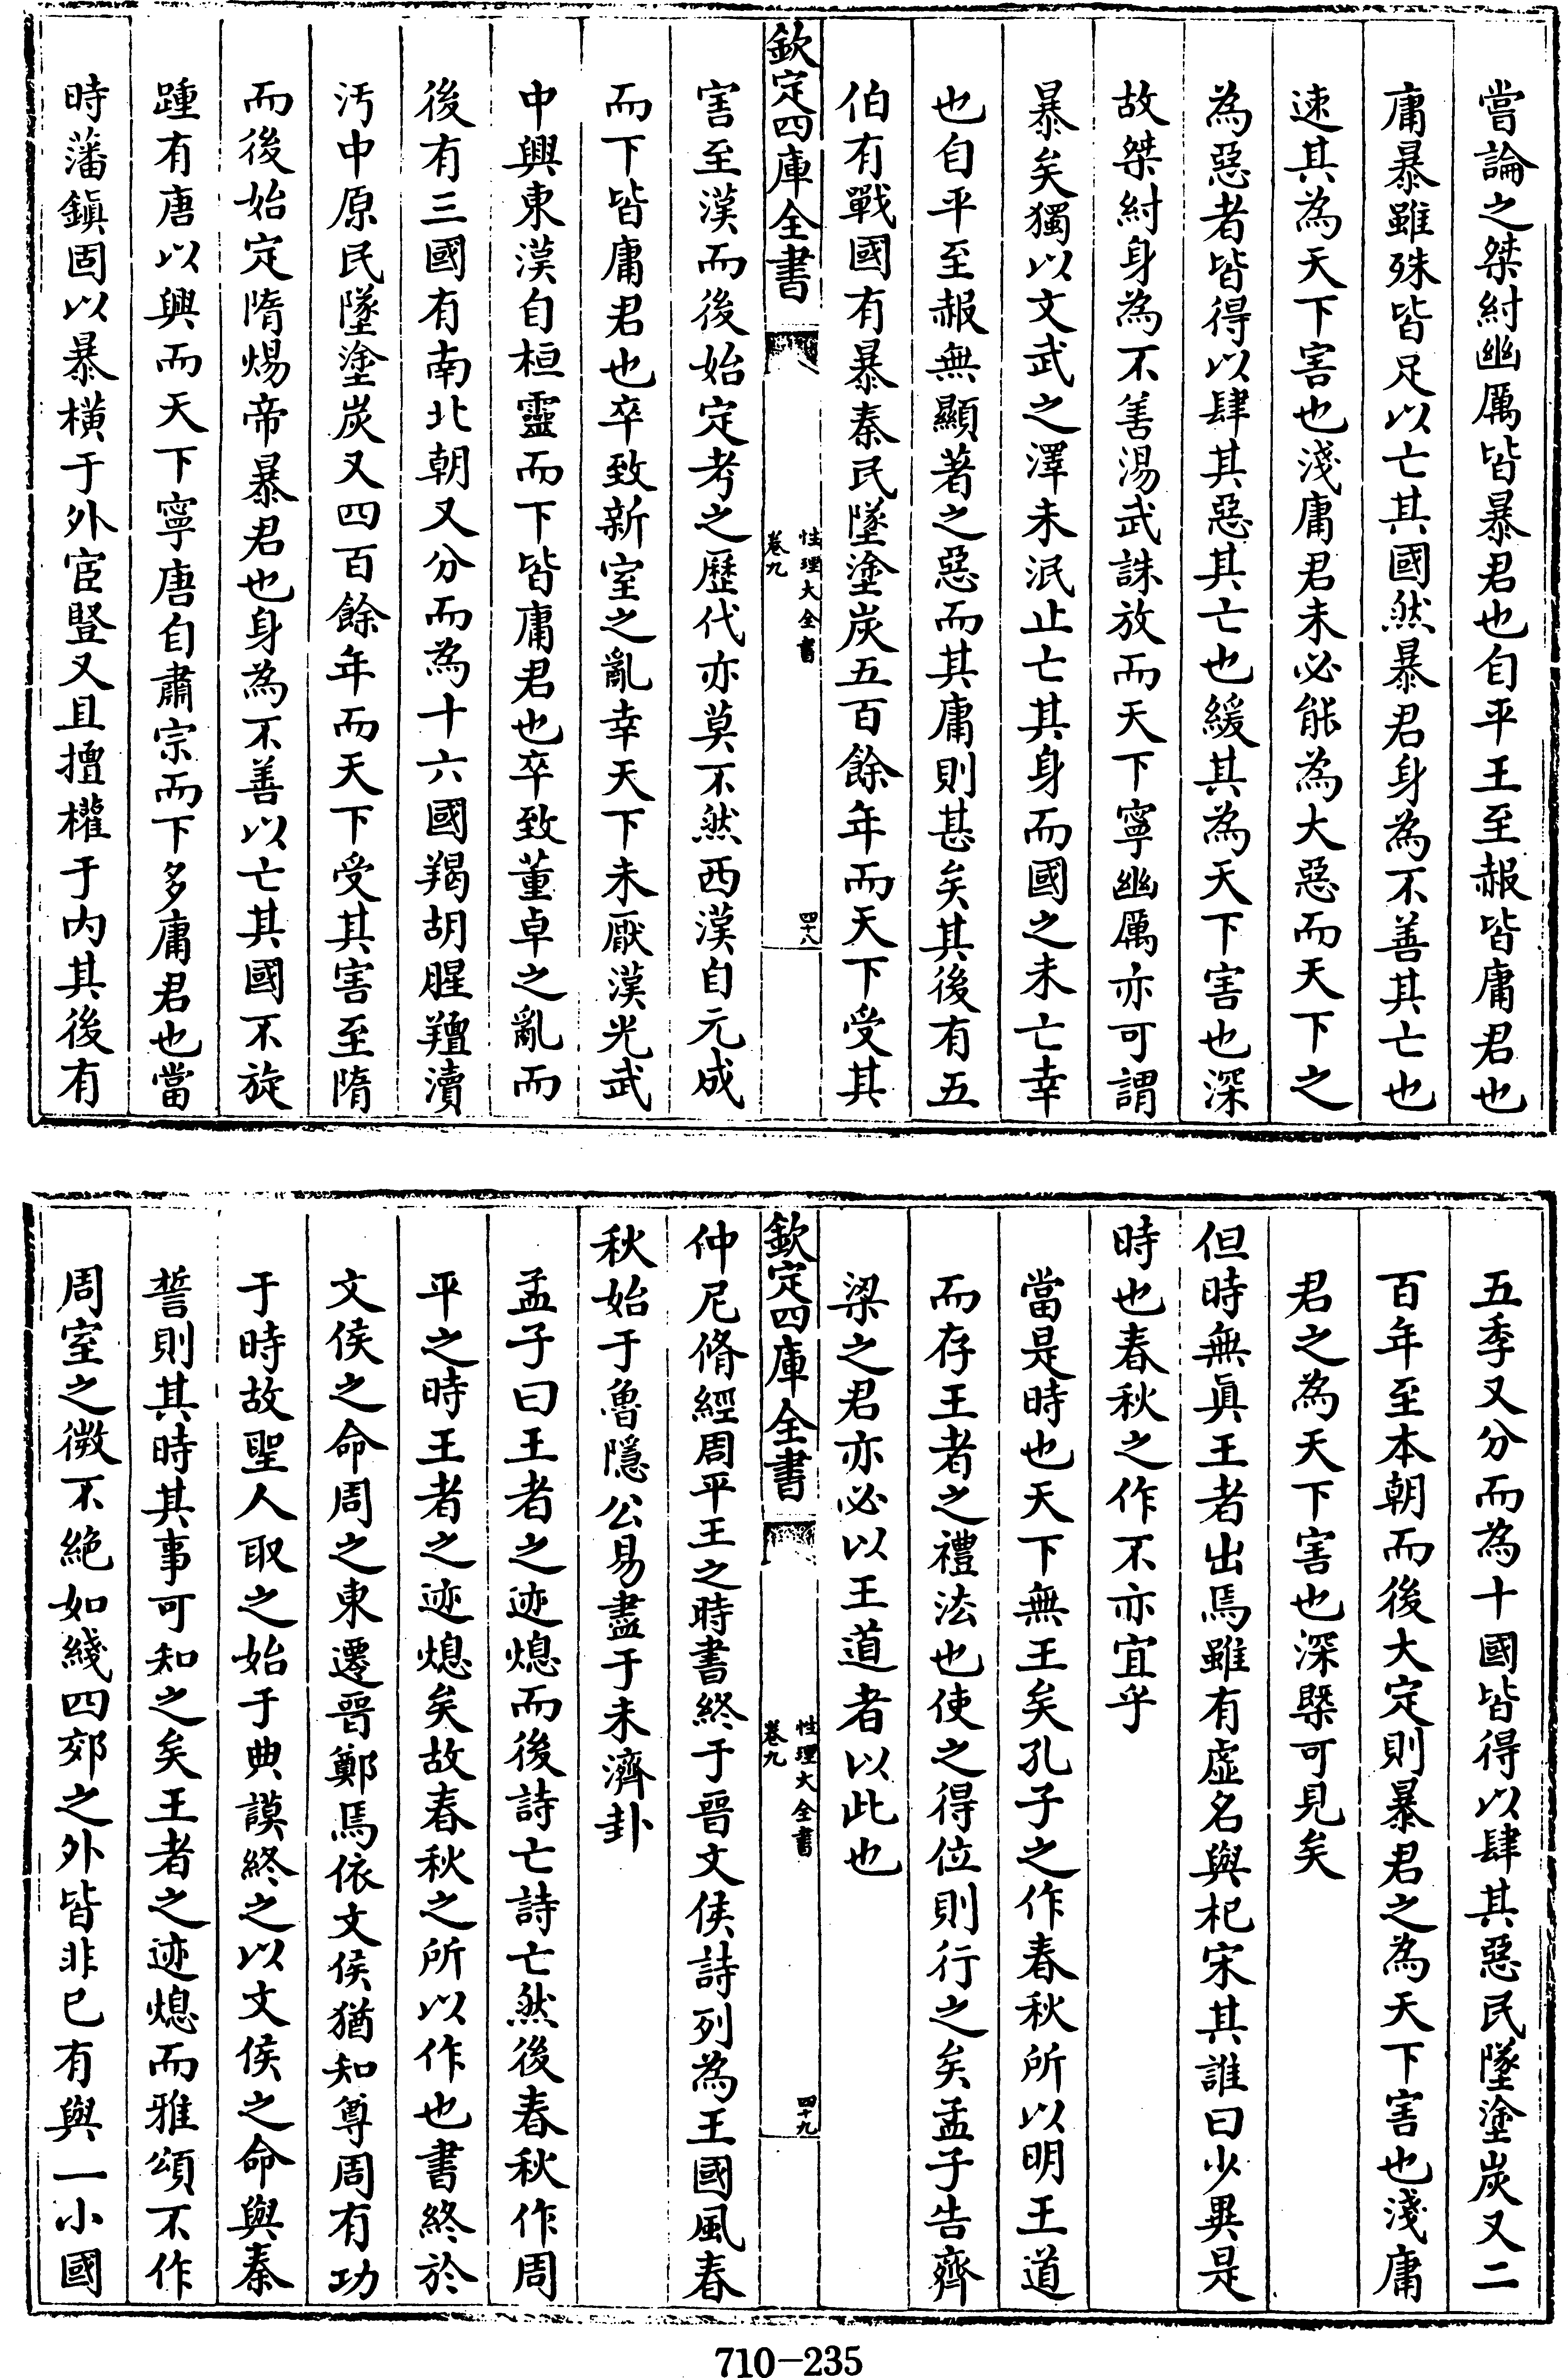 嘗論之桀紂幽厲皆暴君也自平王至赧皆庸君也
庸暴雖殊皆足以亡其國然暴君身為不善其亡也
速其為天下害也淺庸君未必能為大惡而天下之
為惡者皆得以肆其惡其亡也緩其為天下害也深
故桀紂身為不善湯武誅放而天下寧幽厲亦可謂
暴矣獨以文武之澤未泯止亡其身而國之未亡幸
也自平至赧無顯著之惡而其庸則甚矣其後有五
伯有戰國有暴秦民墜塗炭五百餘年而天下受其
欽定四庫全書
性理大全書
卷九
四十八
害至漢而後始定考之歷代亦莫不然西漢自元成
而下皆庸君也卒致新室之亂幸天下未厭漢光武
中興東漢自桓靈而下皆庸君也卒致董卓之亂而
後有三國有南北朝又分而為十六國羯胡腥羶瀆
汚中原民墜塗炭又四百餘年而天下受其害至隋
而後始定隋煬帝暴君也身為不善以亡其國不旋
踵有唐以興而天下寧唐自肅宗而下多庸君也當
時藩鎮固以暴橫于外宦豎又且擅權于內其後有
五季又分而為十國皆得以肆其惡民墜塗炭又二
百年至本朝而後大定則暴君之為天下害也淺庸
君之為天下害也深槩可見矣
但時無真王者出焉雖有虛名與杞宋其誰曰少異是
時也春秋之作不亦宜乎
當是時也天下無王矣孔子之作春秋所以明王道
而存王者之禮法也使之得位則行之矣孟子告齊
梁之君亦必以王道者以此也
欽定四庫全書
性理大全書
卷九
四十九
仲尼脩經周平王之時書終于晉文侯詩列為王國風春
秋始于魯隱公易盡于未濟卦
孟子曰王者之迹熄而後詩亡詩亡然後春秋作周
平之時王者之迹熄矣故春秋之所以作也書終於
文侯之命周之東遷晉鄭焉依文侯猶知尊周有功
于時故聖人取之始于典謨終之以文侯之命與秦
誓則其時其事可知之矣王者之迹熄而雅頌不作
周室之微不絶如綫四郊之外皆非已有與一小國
710-235